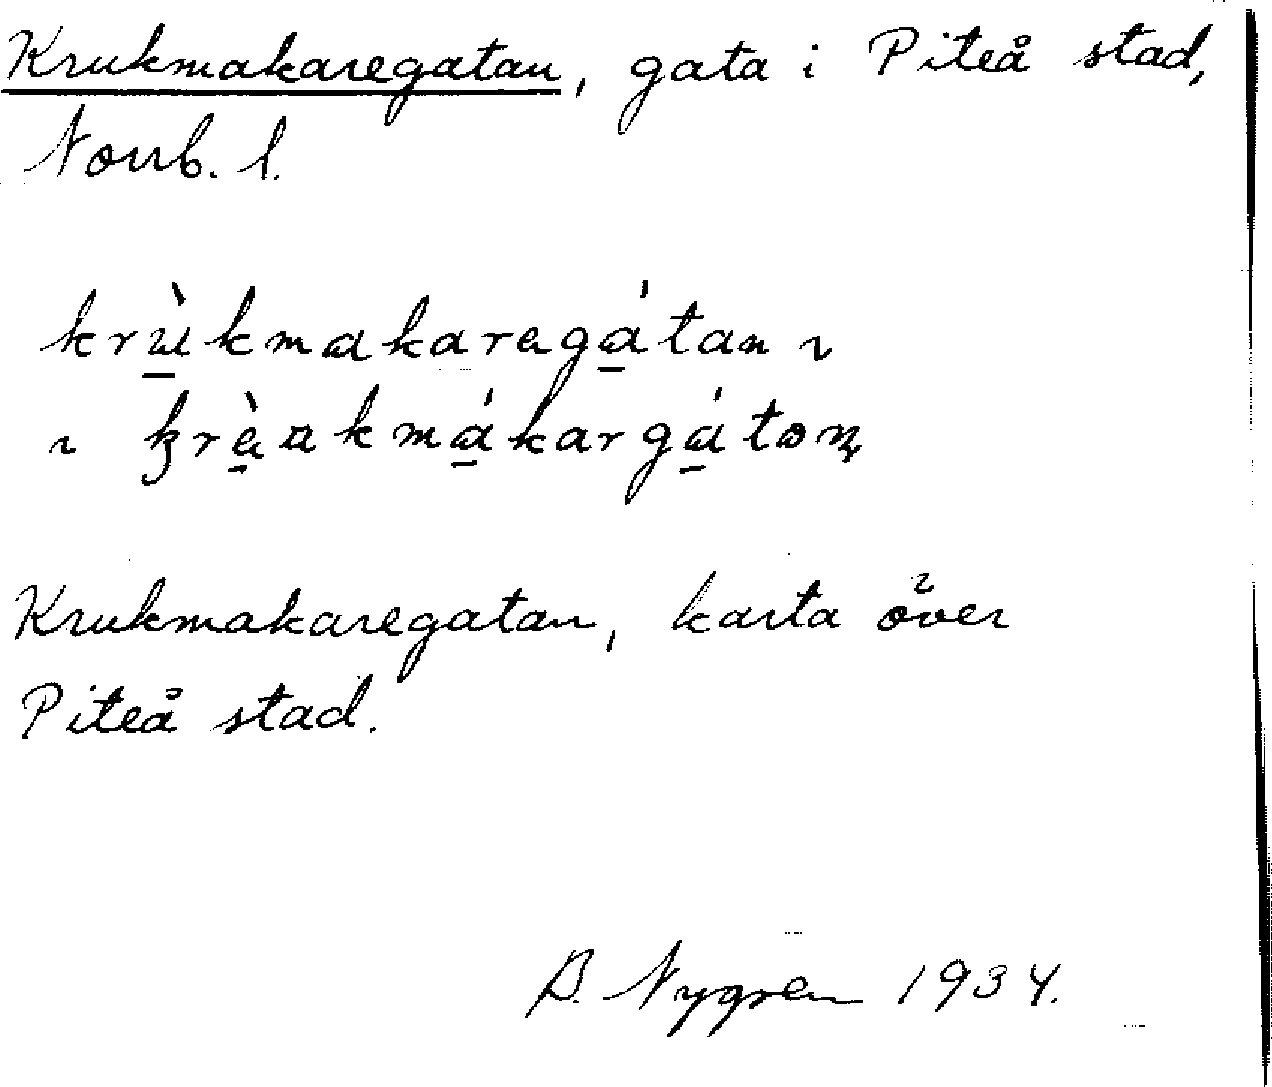 Krukmakaregatan, gata i Piteå stad,
Norrb. l.
krùkmakaregátan ~
~ krèɑkmákargátən
Krukmakaregatan, karta över
Piteå stad.
B. Nygren 1934.